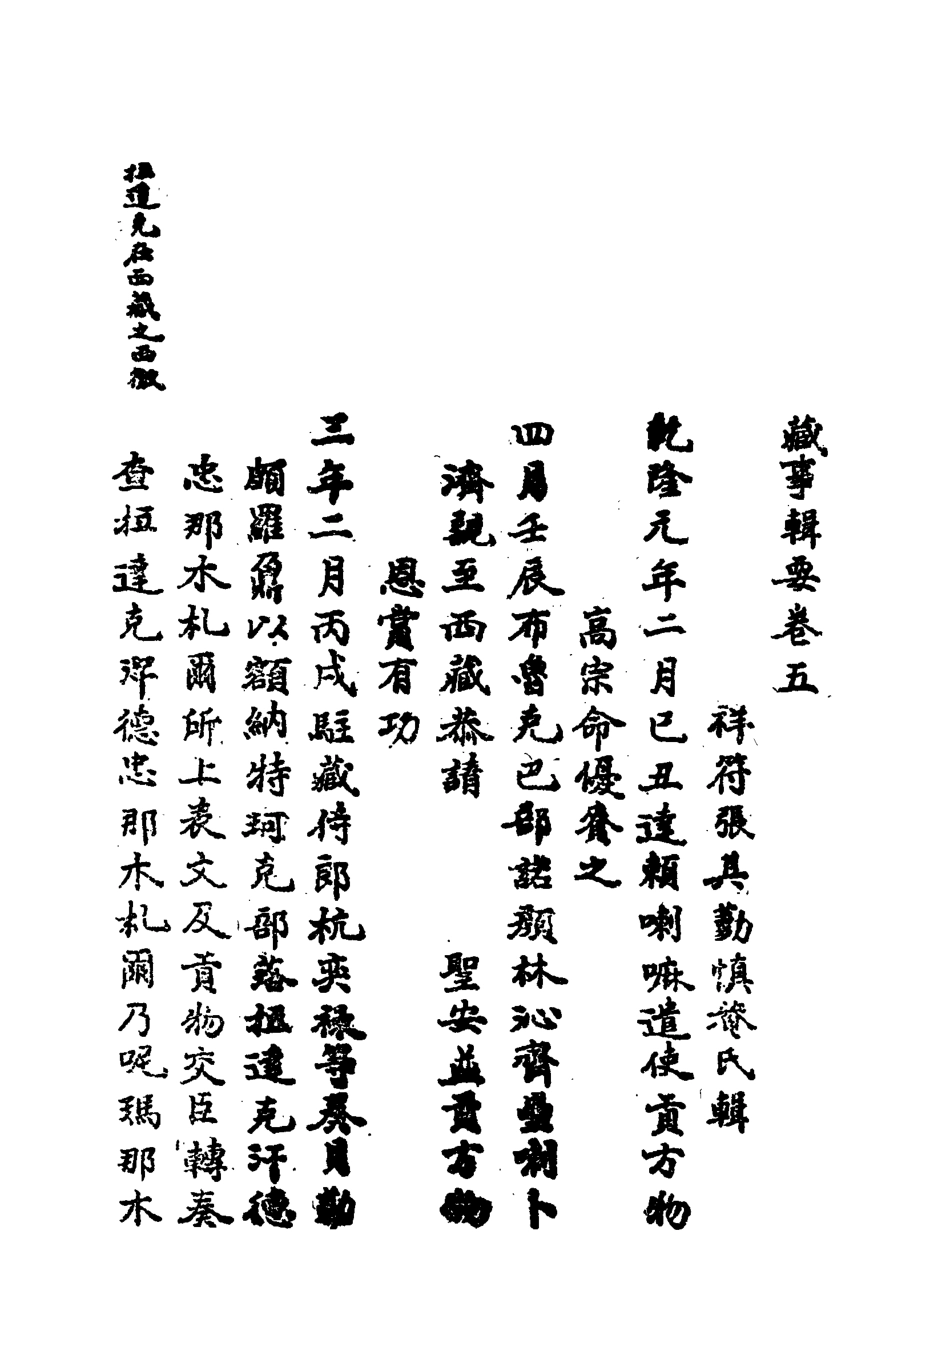 藏事輯要卷五
祥符張其勤慎菴氏輯
乾隆元年二月己丑達賴喇嘛遣使貢方物
高宗命優賚之
四月壬辰布魯克巴部諾顏林沁齊壘喇卜
濟親至西藏恭請
聖安並貢方物
恩賞有功
三年二月丙戌駐藏侍郎杭奕祿等奏貝勒
頗羅鼐以額納特珂克部落扭達克汗德
忠那木札爾所上表文及貢物交臣轉奏
查扭達克即德忠那木札爾乃呢瑪那木
扭達克在西藏之西徼